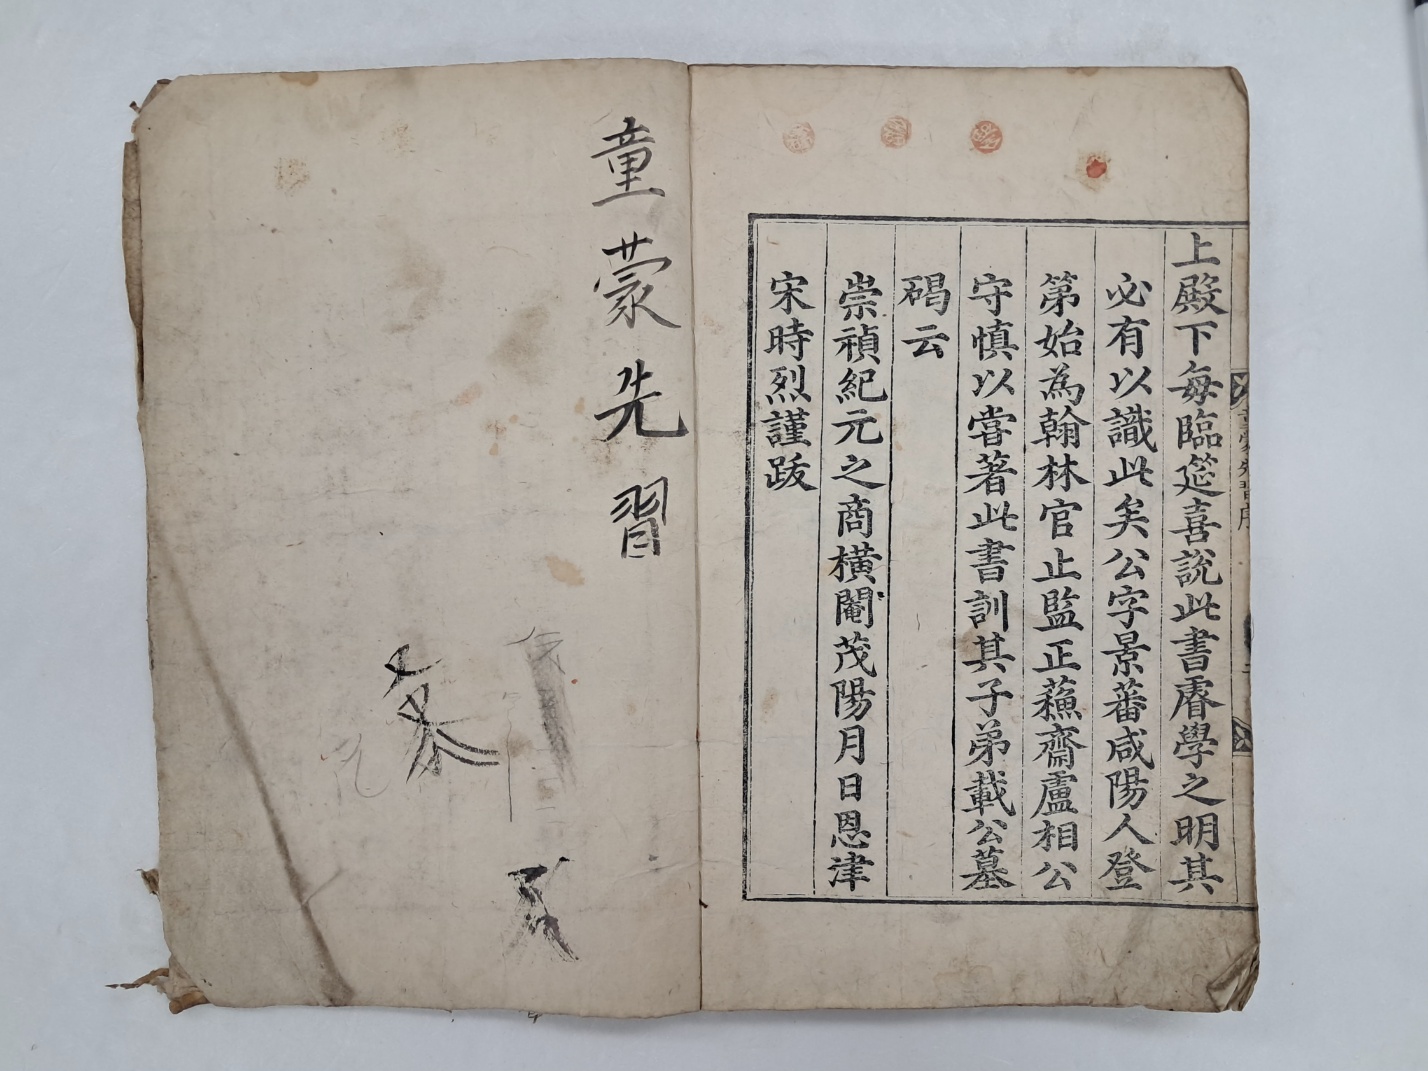 上殿下每臨筵喜說此書睿學之明其
必有以識此矣公字景蕃咸陽人登
第始為翰林官止監正蘓齋盧相公
守慎以嘗著此書訓其子弟載公墓
碣云
崇禎紀元之商橫閹茂陽月日恩津
宋時烈謹跋
童蒙先習